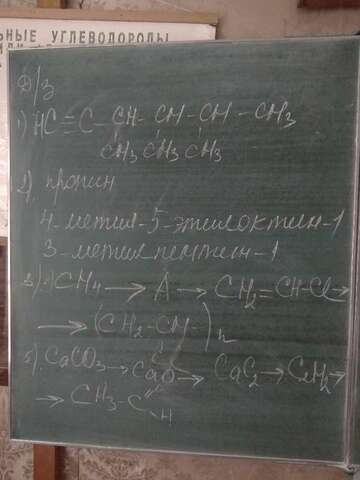 НЫЕ УГЛЕВОДОРОДЫ
Д/з
1) HC≡C-CH-CH-CH-CH3
CH3 CH3 CH3
2) пропин
4-метил-5-этилоктин-1
3-метилпентин-1
3) CH4 → A → CH2=CH-Cl →
→ (CH2-CH-)n
5) CaCO3 → CaO → CaC2 → C2H2 →
→ CH3-C
H